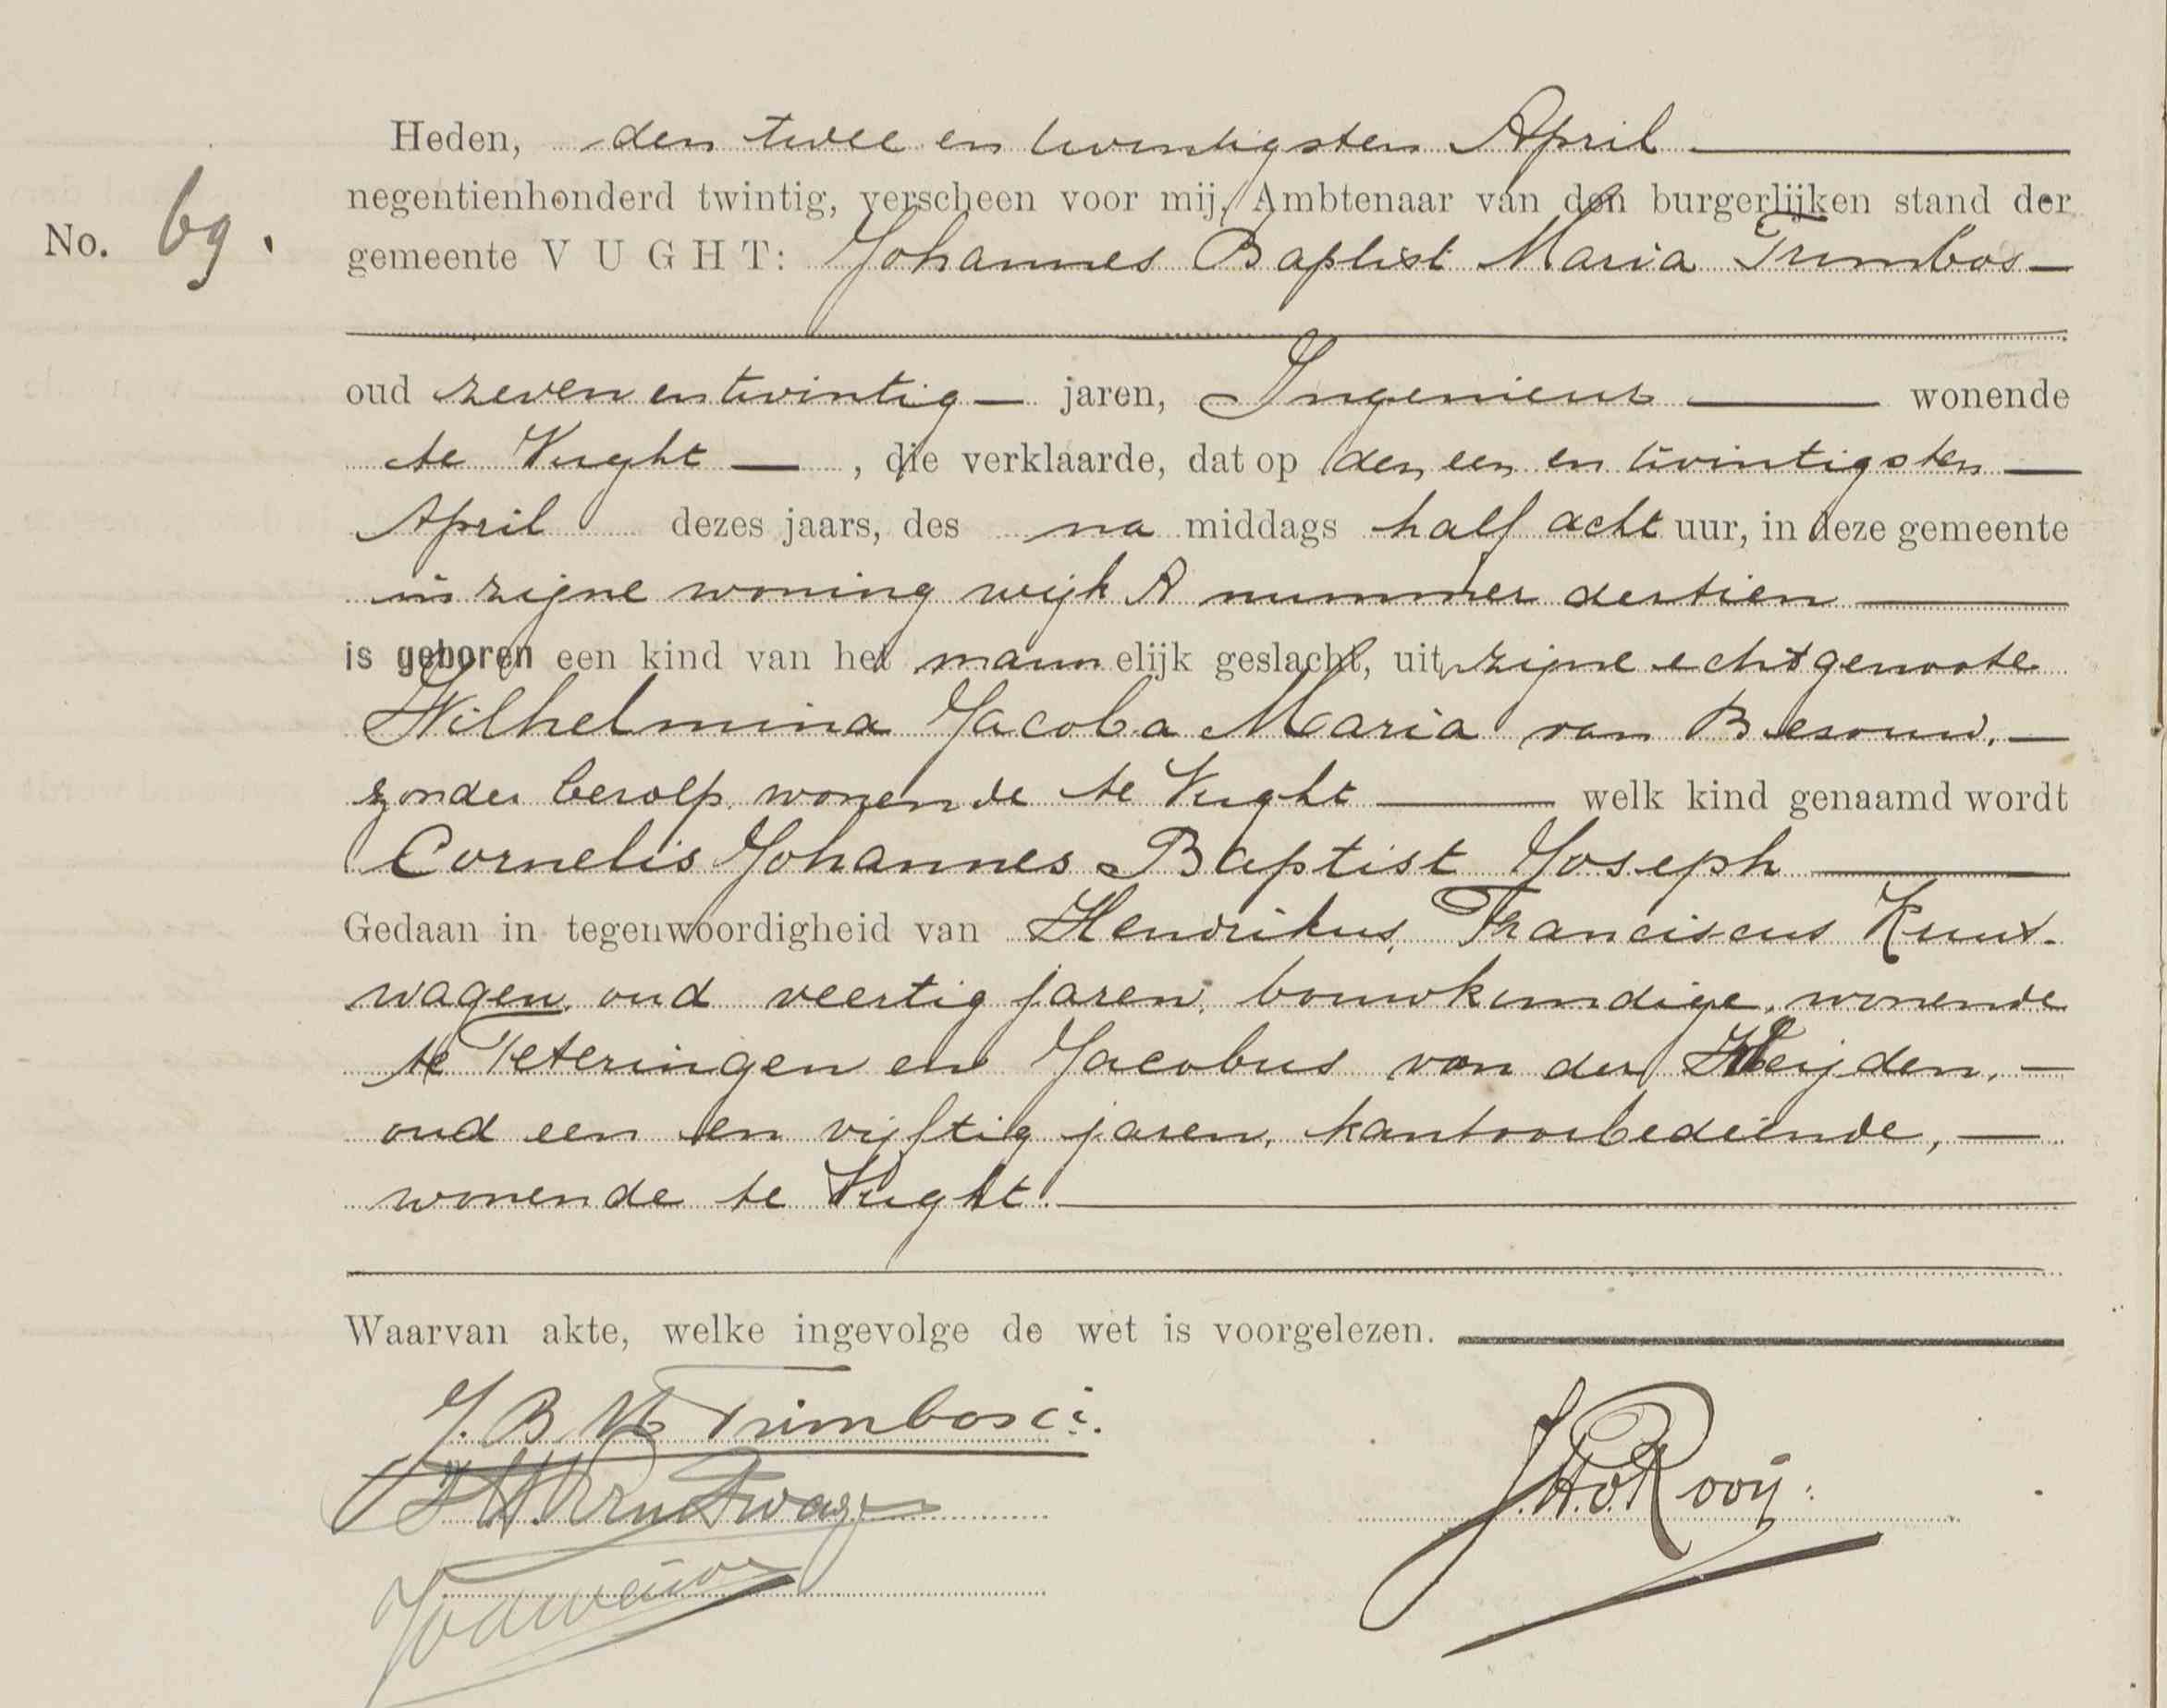 Heden, den twee en twintigsten April
negentienhonderd twintig, verscheen voor mij, Ambtenaar van den burgerlijken stand der
No. 69.
gemeente VUGHT: Johannes Baptist Maria Trimbos
oud zeven en twintig jaren, Ingenieur wonende
te Vught, die verklaarde, dat op den een en twintigsten
April dezes jaars, des na middags half acht uur, in deze gemeente
in zijne woning wijk A nummer dertien
is geboren een kind van het mannelijk geslacht, uit zijne echtgenoote
Wilhelmina Jacoba Maria van Besouw,
zonder beroep, wonende te Vught welk kind genaamd wordt
Cornelis Johannes Baptist Joseph
Gedaan in tegenwoordigheid van Hendrikus Franciscus
wagen, oud veertig jaren, bouwkundige, wonende
te Teteringen en Jacobus van der Weijden,
oud een en vijftig jaren, kantoorbediende,
wonende te Vught.
Waarvan akte, welke ingevolge de wet is voorgelezen.
J.B.M. Trimbos c.i.
J.H.v.Rooij.